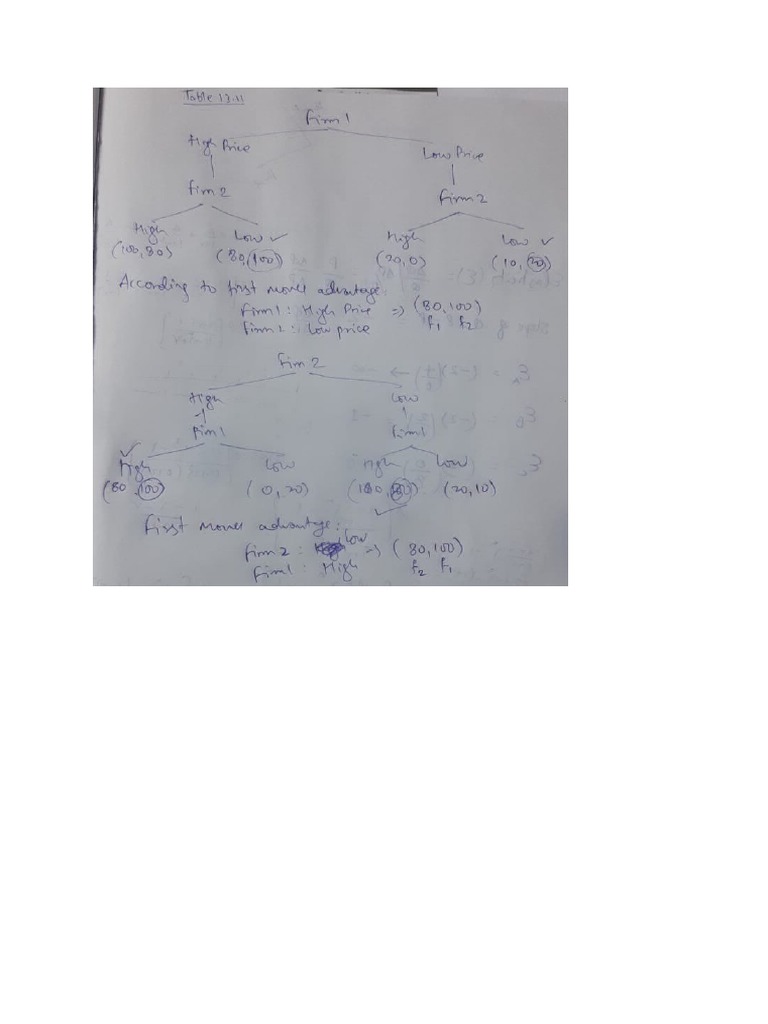 Table 13.11
Firm 1
High Price
Low Price
Firm 2
Firm 2
High
Low ✓
High
Low ✓
(100,80)
(80,100)
(20,0)
(10,20)
According to first moves advantage:
Firm 1 : High Price => (80,100)
Firm 2 : Low price F1 F2
Firm 2
High
Low
Firm 1
Firm 1
✓
High
Low
High
Low
(80,100)
(0,20)
(100,80)
(20,10)
✓
First moves advantage:
Firm 2 : Low => (80,100)
Firm 1 : High F2 F1